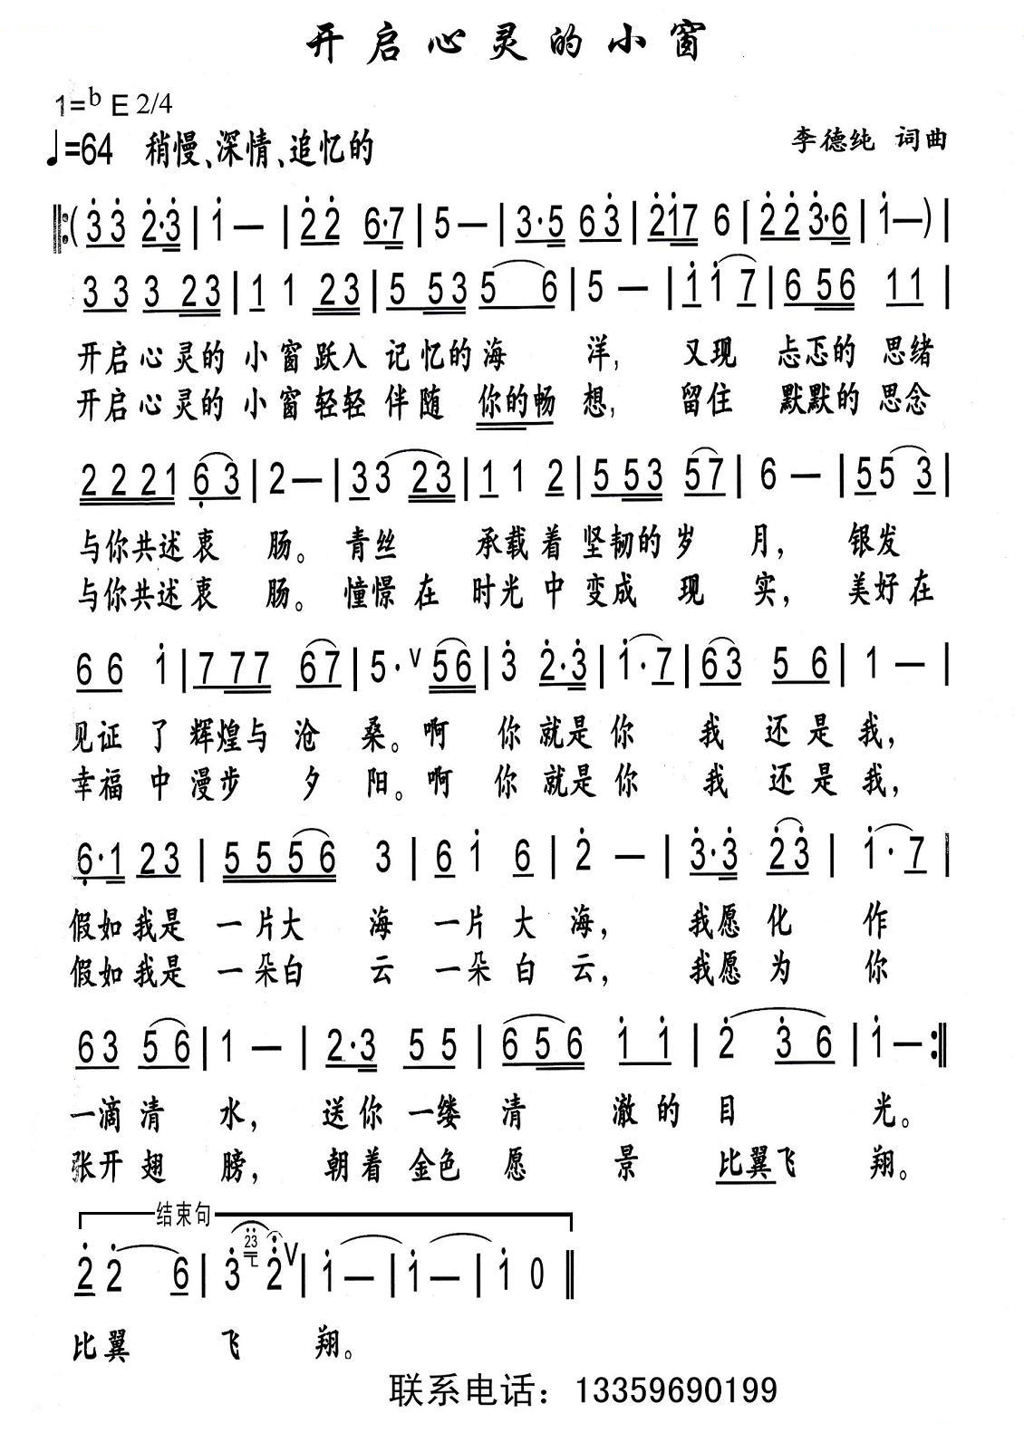 开启心灵的小窗
1=ᵇE 2/4
♩=64 稍慢、深情、追忆的
李德纯 词曲
‖:(3̇3̇ 2̇·3̇|1̇ —|2̇2̇ 6·7|5 —|3·5 63̇|2̇1̇7 6|2̇2̇3̇·6|1̇—)|
33 3 23|1 1 23|5 53 5 6|5 —|1̇ 1̇ 7|6 56 11|
开启心灵的 小窗跃入 记忆的海 洋, 又现 忐忑的 思绪
开启心灵的 小窗轻轻 伴随 你的畅 想, 留住 默默的 思念
2221 6̣3|2—|33 23|1 1 2|5 53 57|6 —|55 3|
与你共述衷 肠。青丝 承载着 坚韧的岁 月, 银发
与你共述衷 肠。憧憬在 时光中 变成 现 实, 美好在
66 1̇|7 77 67|5·ⱽ56|3̇ 2̇·3̇|1̇·7|63 5 6|1 —|
见证 了 辉煌与 沧 桑。啊 你 就是你 我 还是我,
幸福 中 漫步 夕 阳。啊 你 就是你 我 还是我,
6̣·1 23|5556 3|6 1̇ 6|2̇ —|3̇·3̇ 2̇3̇|1̇·7|
假如我是 一片大 海 一片 大 海, 我愿 化 作
假如我是 一朵白 云 一朵 白 云, 我愿 为 你
63 56|1 —|2·3 55|6 56 1̇ 1̇|2̇ 3̇ 6|1̇—:‖
一滴清 水, 送你 一缕 清 澈的 目 光。
张开翅 膀, 朝着 金色 愿 景 比翼飞 翔。
结束句
2̇2̇ 6|3̇ 2̇3̇ 2̇ⱽ|1̇—|1̇—|1̇ 0‖
比翼 飞 翔。
联系电话：13359690199